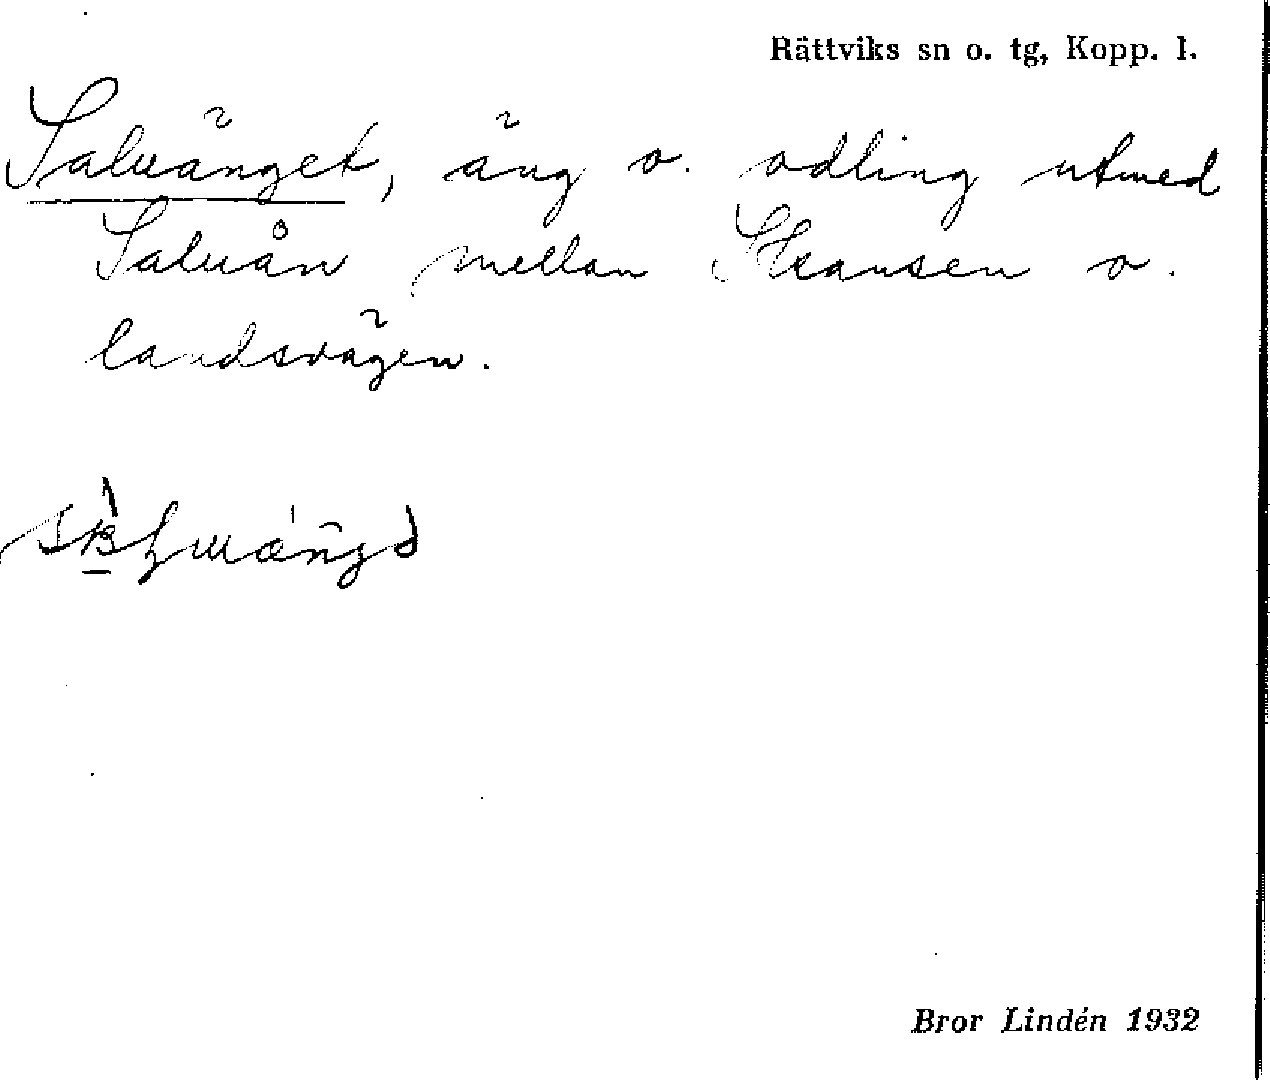 Rättviks sn o. tg, Kopp. l.
Saluänget, äng o. odling utmed
Saluån mellan o.
landsvägen.
Bror Lindén 1932